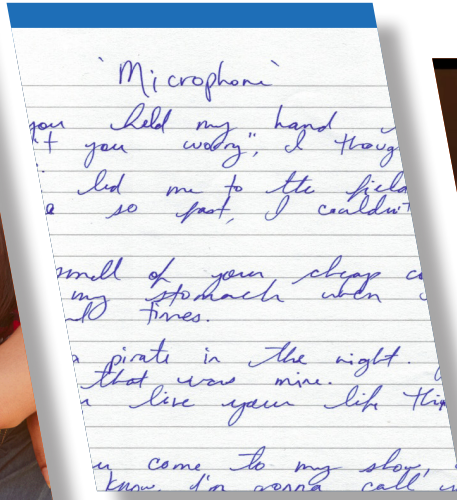 'Microphone'
you held my hand
't you worry", I thoug
led me to the field
so fast, I couldn't
smell of your cheap co
my stomach when
times.
pirate in the night.
that was mine.
live your life thi
u come to my show,
know, I'm gonna call